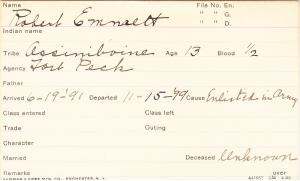 Name Robert Emmett File No. En.
" " G.
" " D.
Indian name
Tribe Assiniboine Age 13 Blood 1/2
Agency Fort Peck
Father
Arrived 6-19-'91 Departed 11-15-'99 Cause Enlisted in Army
Class entered Class left
Trade Outing
Character
Married Deceased Unknown
Remarks over